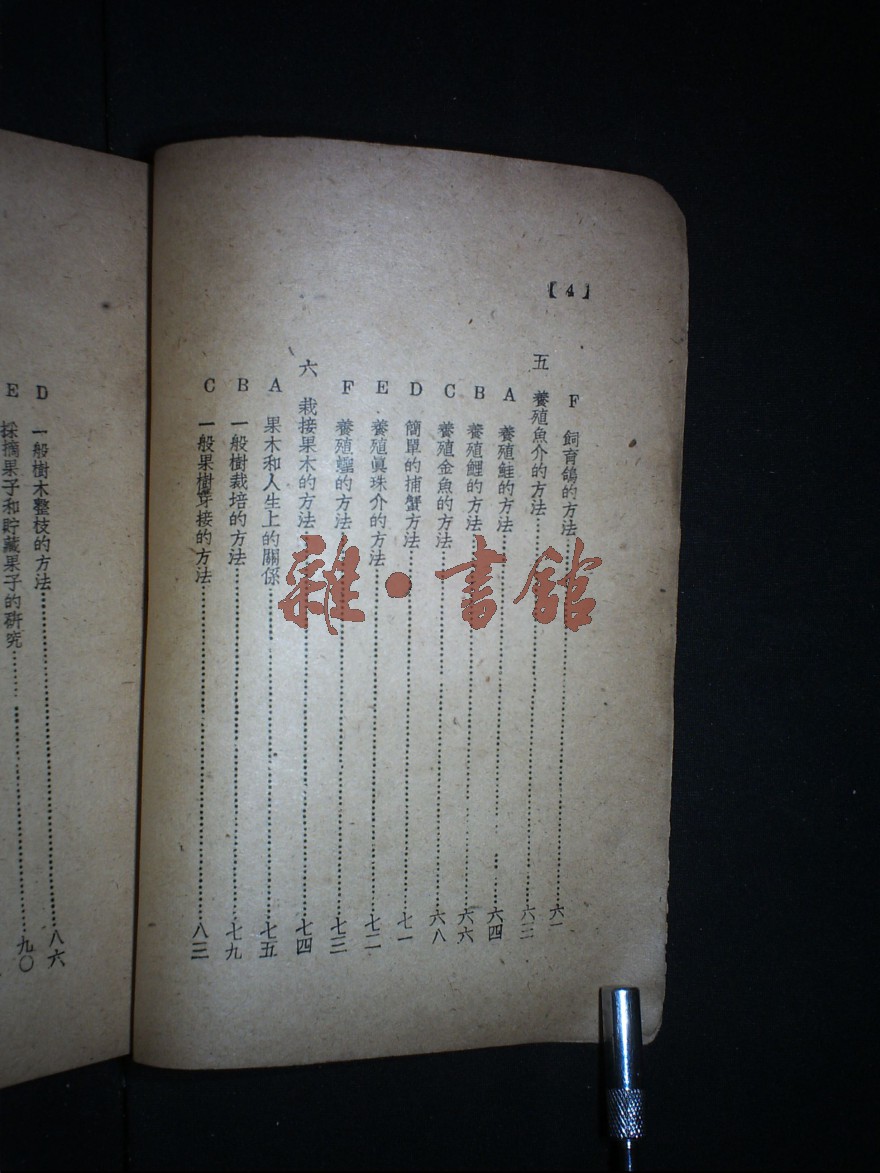 【4】
F 飼育鴿的方法……六一
五 養殖魚介的方法……六三
A 養殖鮭的方法……六四
B 養殖鯉的方法……六六
C 養殖金魚的方法……六八
D 簡單的捕蟹方法……七一
E 養殖眞珠介的方法……七二
F 養殖蠣的方法……七三
六 栽接果木的方法……七四
A 果木和人生上的關係……七五
B 一般樹栽培的方法……七九
C 一般果樹芽接的方法……八三
D 一般樹木整枝的方法……八六
E 採摘果子和貯藏果子的研究……九〇
雜·書館